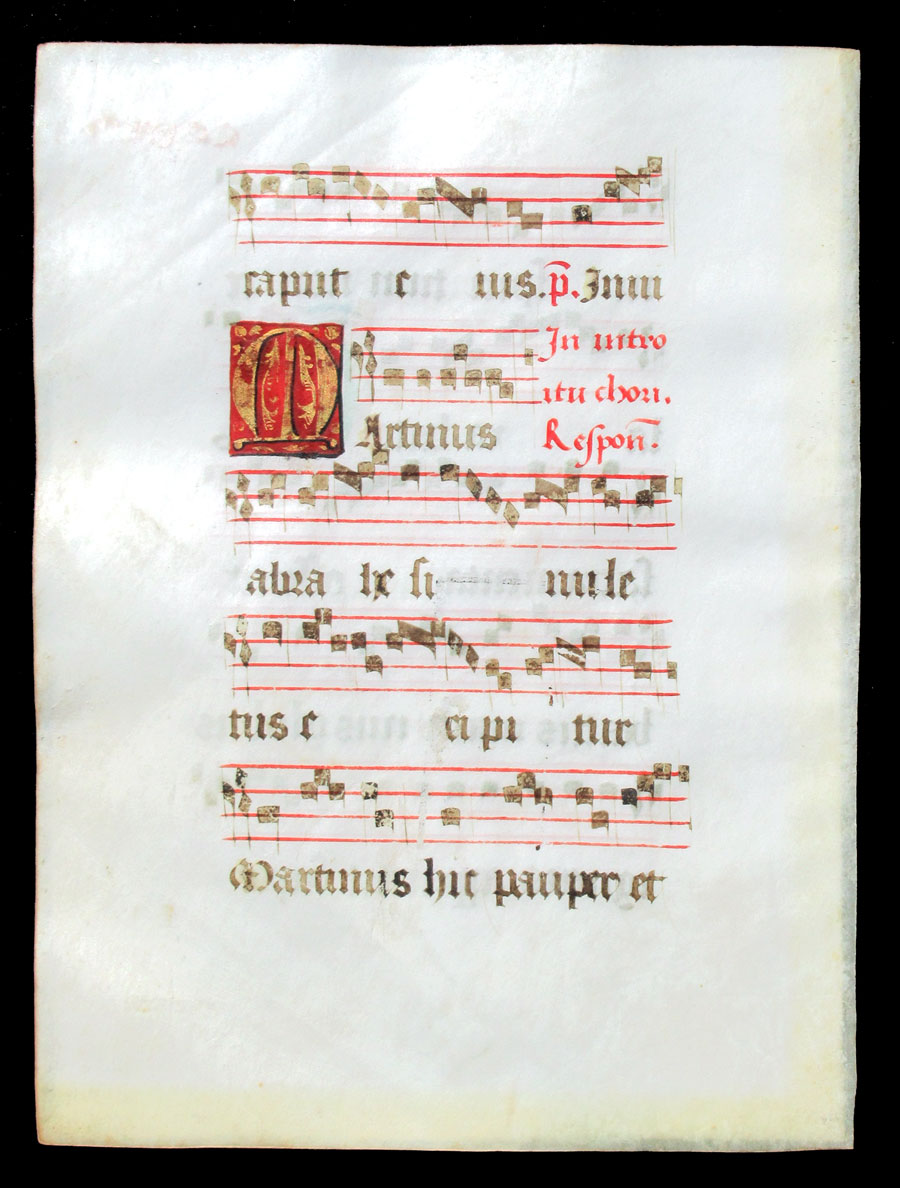 caput e ius. p̄. Inni
In intro
itu chori.
MArtinus Respon̄.
abra he si nu le
tus e ci pi tur
Martinus hic pauper et